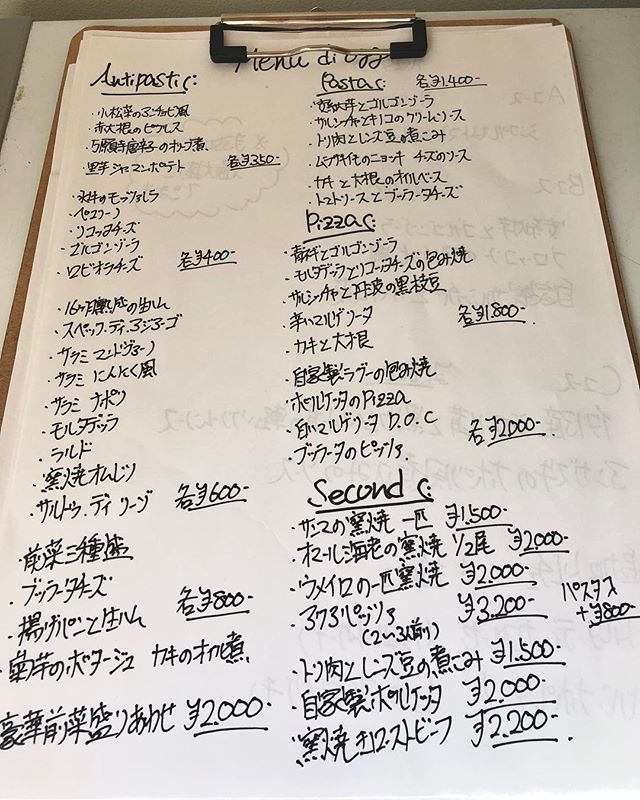 Menu di oggi
Antipasti:
・小松菜のアンチョビ風
・赤大根のピクルス
・万願寺唐辛子のオリーブ煮
・里芋ジャーマンポテト 各¥350-
・水牛のモッツァレラ
・ペコリーノ
・リコッタチーズ
・ゴルゴンゾーラ
・ロビオラチーズ 各¥400-
・16ヶ月熟成の生ハム
・スペック・ディ・アジアーゴ
・サラミ マンドヴァーノ
・サラミ にんにく風
・サラミ ナポリ
・モルタデッラ
・ラルド
・窯焼オムレツ
・サルトゥ・ディ・リーゾ 各¥600-
・前菜三種盛
・ブッラータチーズ
・揚げパンと生ハム 各¥800-
・菊芋のポタージュ カキのオイル煮
豪華前菜盛りあわせ ¥2,000-
Pasta: 各¥1,400-
・安納芋とゴルゴンゾーラ
・サルシッチャとキノコのクリームソース
・トリ肉とレンズ豆の煮こみ
・ムラサキイモのニョッキ チーズのソース
・カキと大根のオイルベース
・トマトソースとブッラータチーズ
Pizza:
・青ネギとゴルゴンゾーラ
・モルタデッラとリコッタチーズの包み焼
・サルシッチャと丹波の黒枝豆
・辛いマルゲリータ 各¥1800-
・カキと大根
・自家製ラグーの包み焼
・ポルケッタのPizza
・白いマルゲリータ D.O.C
・ブッラータのピッツァ 各¥2000-
Second:
・サンマの窯焼 一匹 ¥1,500-
・オマール海老の窯焼 1/2尾 ¥2,000-
・ウメイロの一匹窯焼 ¥2,000-
・アクアパッツァ ¥3,200- パスタ
(2〜3人前) +¥800-
・トリ肉とレンズ豆の煮こみ ¥1,500-
・自家製ポルケッタ ¥2,000-
・窯焼きローストビーフ ¥2,200-